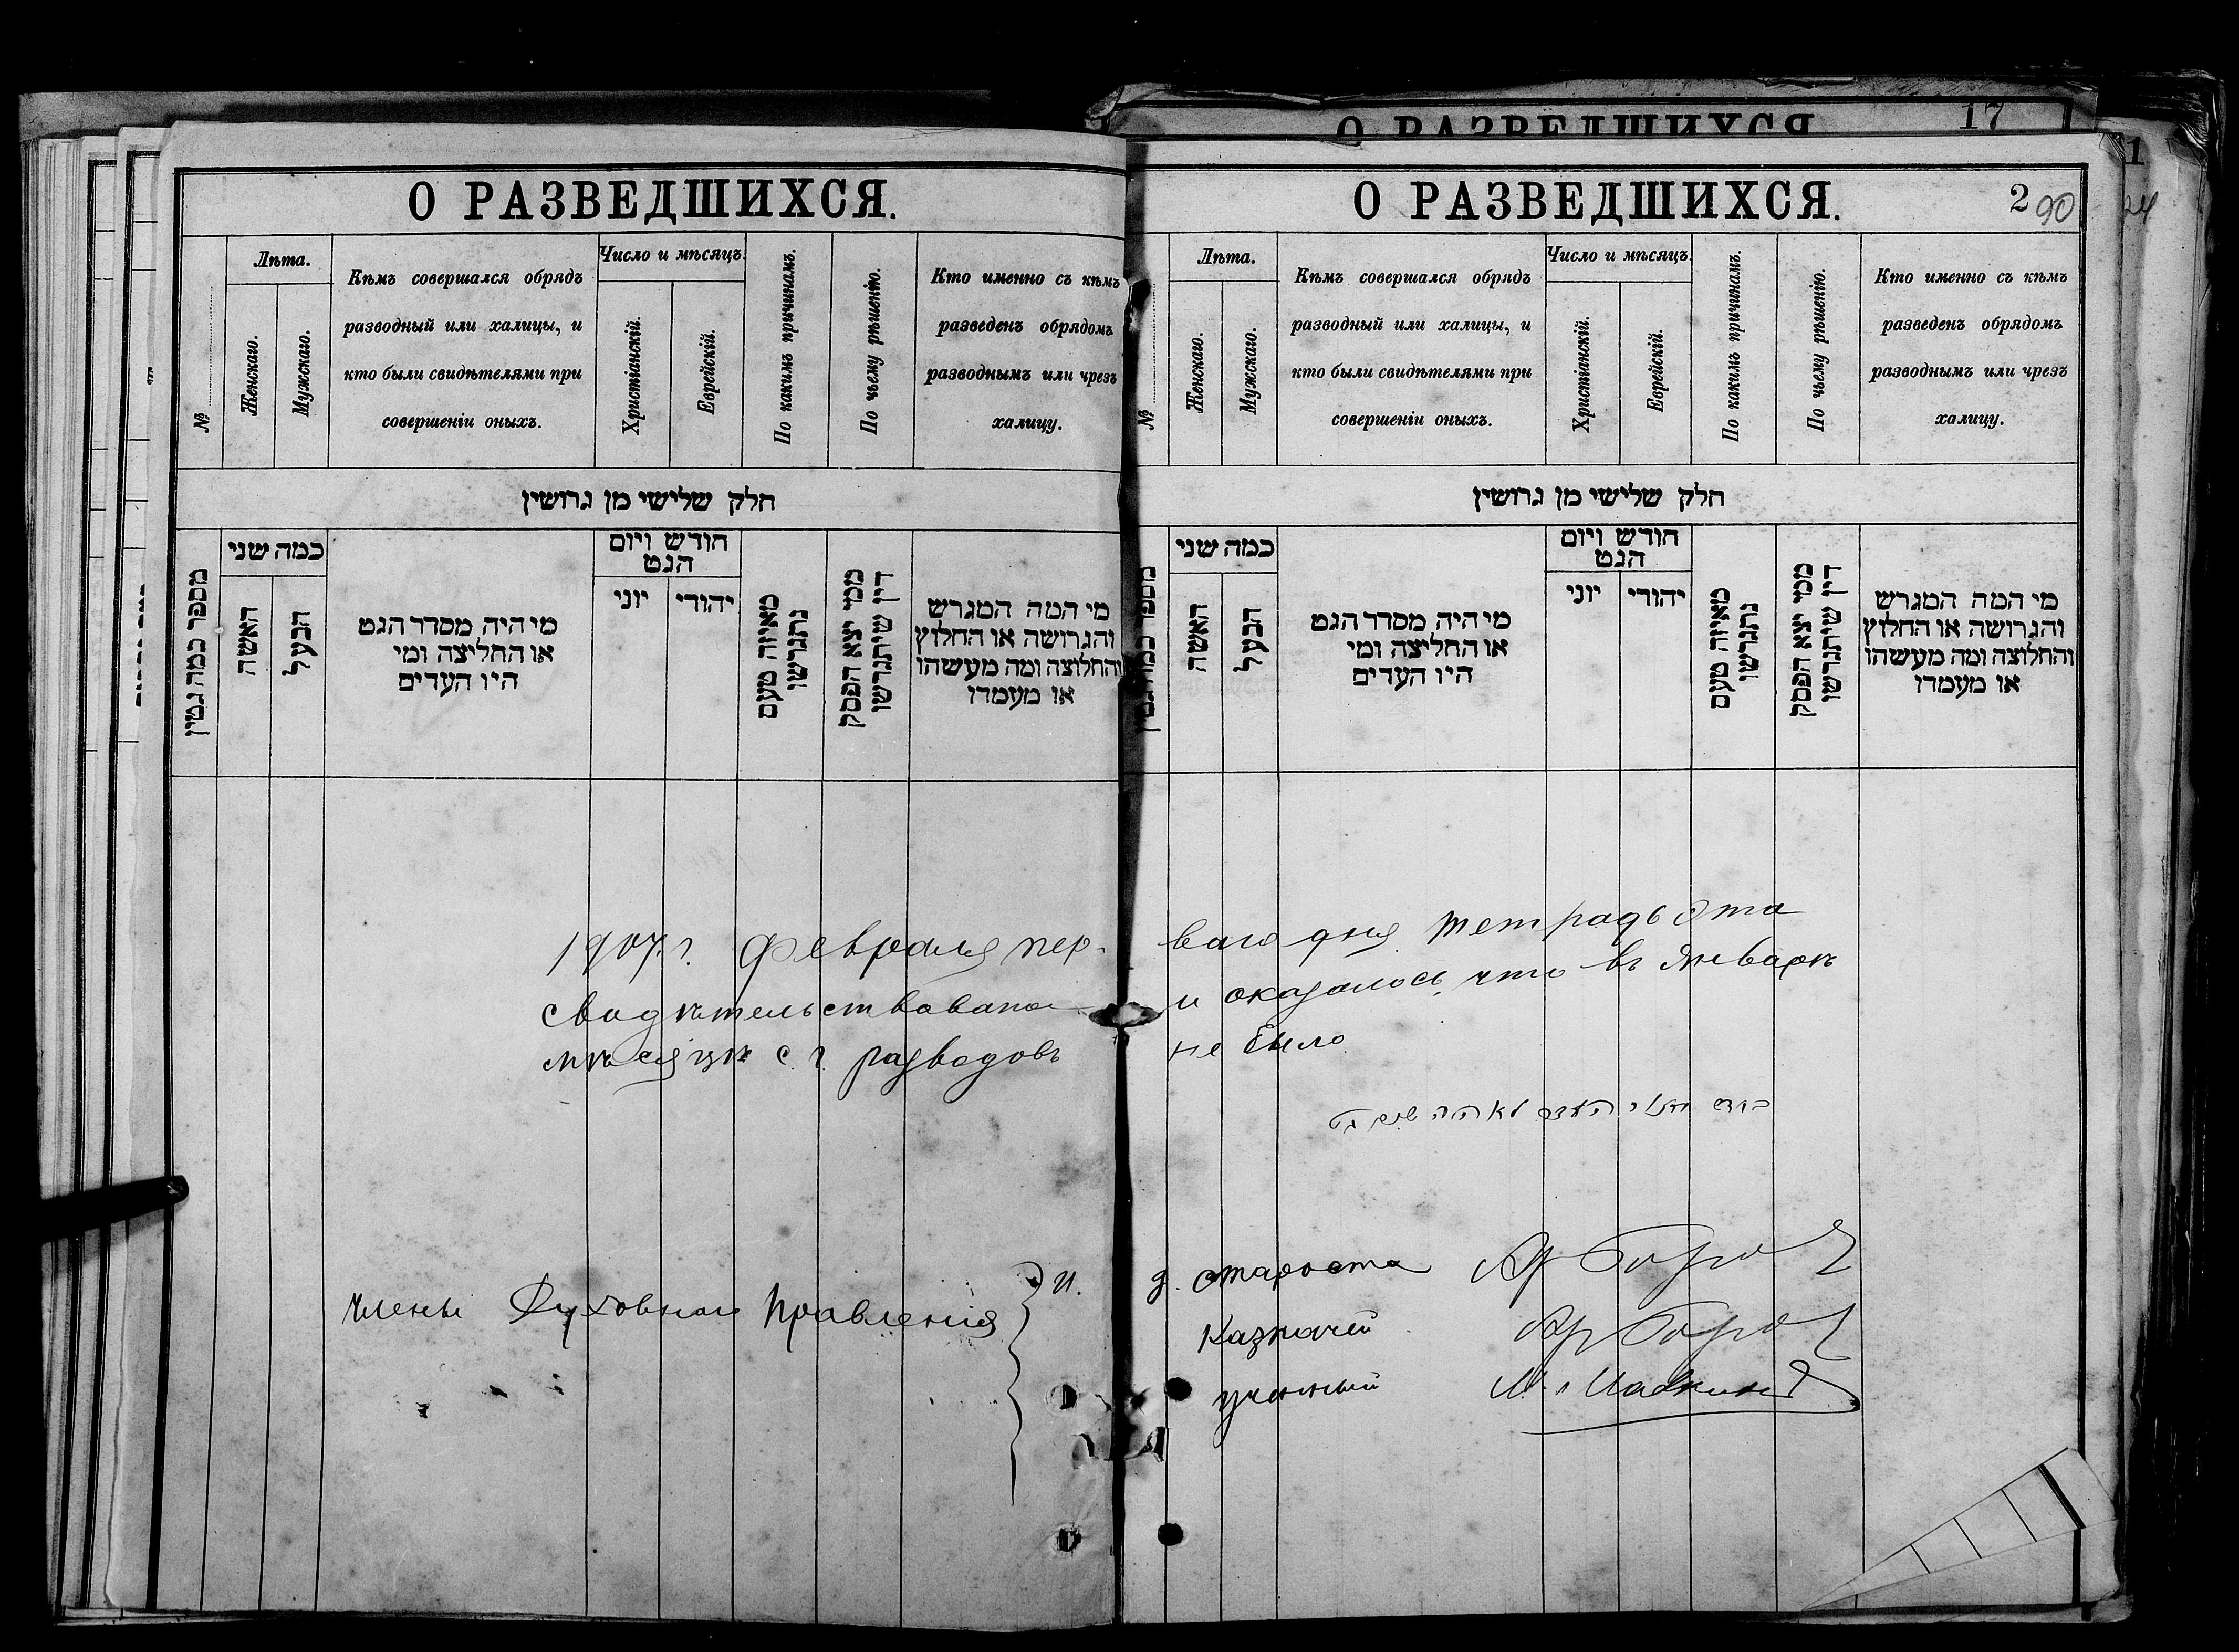 О РАЗВЕДШИХСЯ. 17
О РАЗВЕДШИХСЯ.
№
Лѣта.
Женскаго.
Мужскаго.
Кѣмъ совершался обрядъ
разводный или халицы, и
кто были свидѣтелями при
совершеніи оныхъ.
Число и мѣсяцъ.
Христіанскій.
Еврейскій.
По какимъ причинамъ.
По чьему рѣшенію.
Кто именно съ кѣмъ
разведенъ обрядомъ
разводнымъ или чрезъ
халицу.
חלק שלישי מן גרושין
מספר כמה גטין
כמה שני
האשה
הבעל
מי היה מסדר הגט
או החליצה ומי
היו העדים
חודש ויום
הגט
יוני
יהודי
מאיזה טעם
נתגרשו
ממי יצא הפסק
דין שיתגרשו
מי המה המגרש
והגרושה או החלוץ
והחלוצה ומה מעשהו
או מעמדו
О РАЗВЕДШИХСЯ. 2 90
№
Лѣта.
Женскаго.
Мужскаго.
Кѣмъ совершался обрядъ
разводный или халицы, и
кто были свидѣтелями при
совершеніи оныхъ.
Число и мѣсяцъ.
Христіанскій.
Еврейскій.
По какимъ причинамъ.
По чьему рѣшенію.
Кто именно съ кѣмъ
разведенъ обрядомъ
разводнымъ или чрезъ
халицу.
חלק שלישי מן גרושין
מספר כמה גטין
כמה שני
האשה
הבעל
מי היה מסדר הגט
או החליצה ומי
היו העדים
חודש ויום
הגט
יוני
יהודי
מאיזה טעם
נתגרשו
ממי יצא הפסק
דין שיתגרשו
מי המה המגרש
והגרושה או החלוץ
והחלוצה ומה מעשהו
או מעמדו
1907 г. Февраля пер- ваго дня тетрадь эта
свидѣтельствована и оказалось, что въ Январѣ
мѣсяцѣ с. г. разводовъ не было
Члены Духовнаго Правленія } И. д. староста
Казначей
ученый